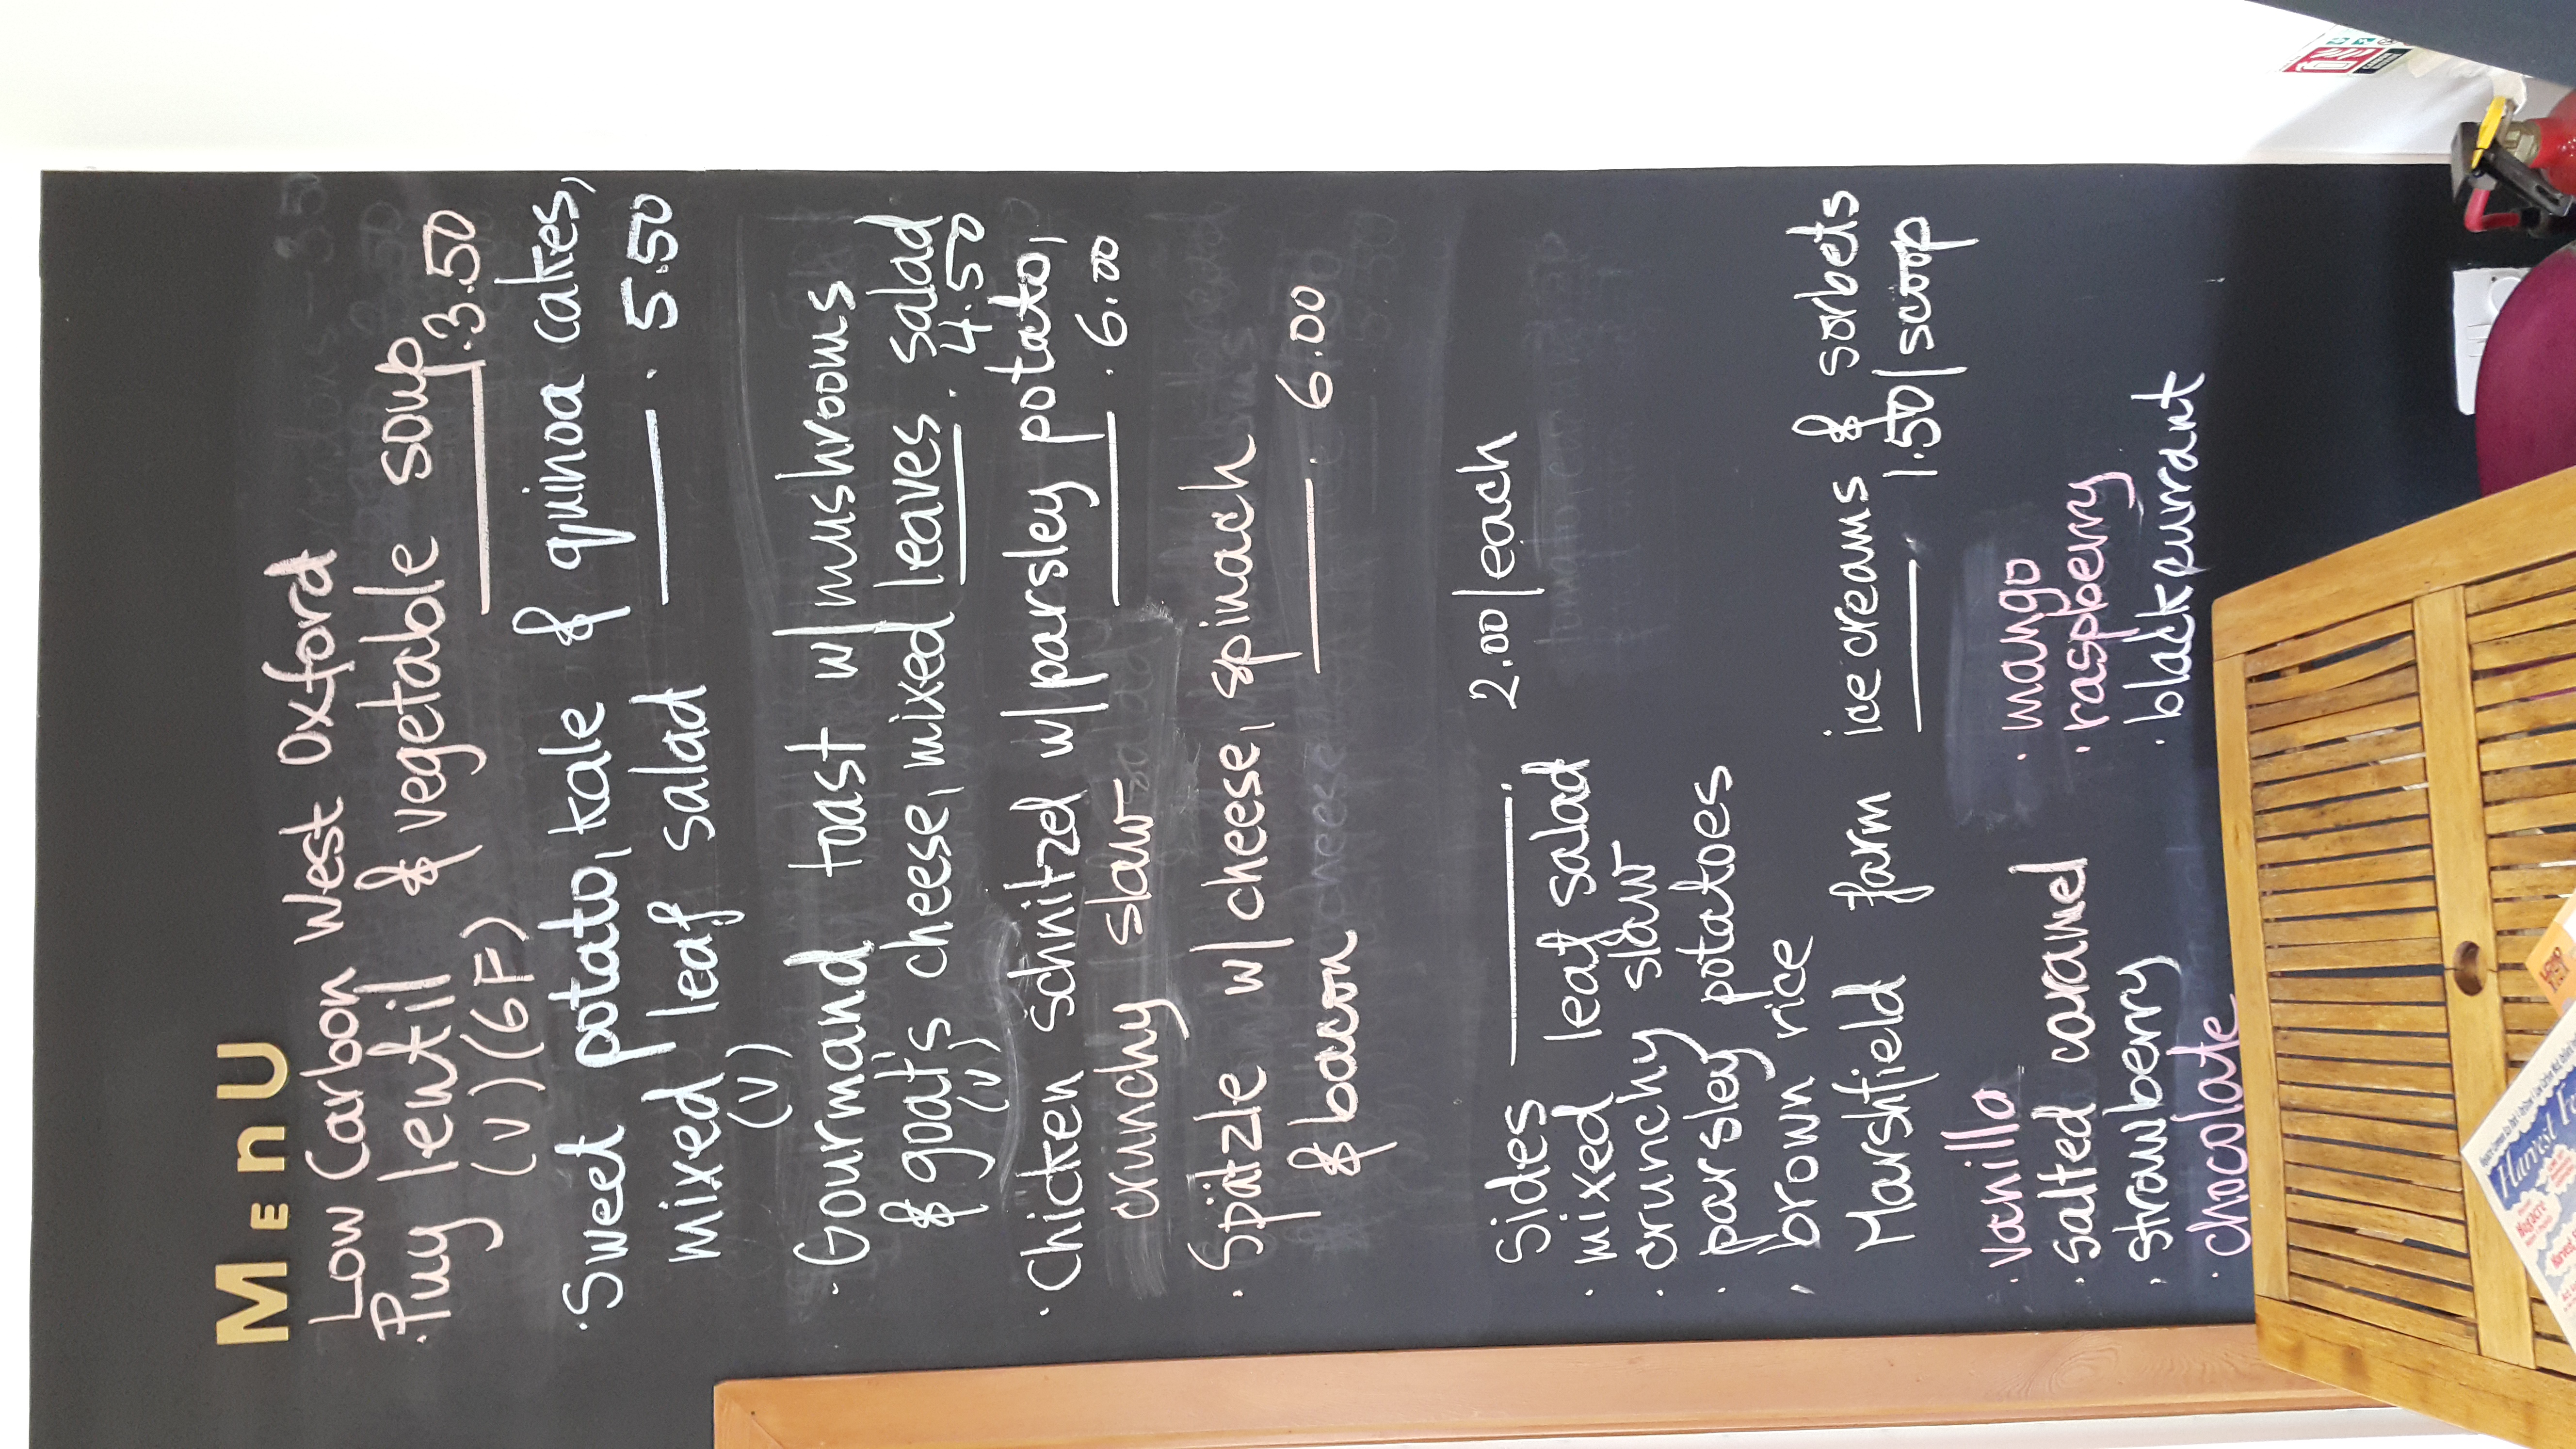 MENU
Low Carbon West Oxford
· Puy lentil & vegetable soup
(V) (GF) . 3.50
· Sweet potato, kale & quinoa cakes,
mixed leaf salad . 5.50
(V)
· Gourmand toast w/mushrooms
& goat's cheese, mixed leaves salad
(V) . 4.50
· Chicken schnitzel w/parsley potato,
crunchy slaw . 6.00
· Spätzle w/cheese, spinach
& bacon . 6.00
Sides : 2.00/each
· mixed leaf salad
· crunchy slaw
· parsley potatoes
· brown rice
Marshfield farm ice creams & sorbets
1.50/scoop
· vanilla · mango
· salted caramel · raspberry
· strawberry · blackcurrant
· chocolate
Harvest